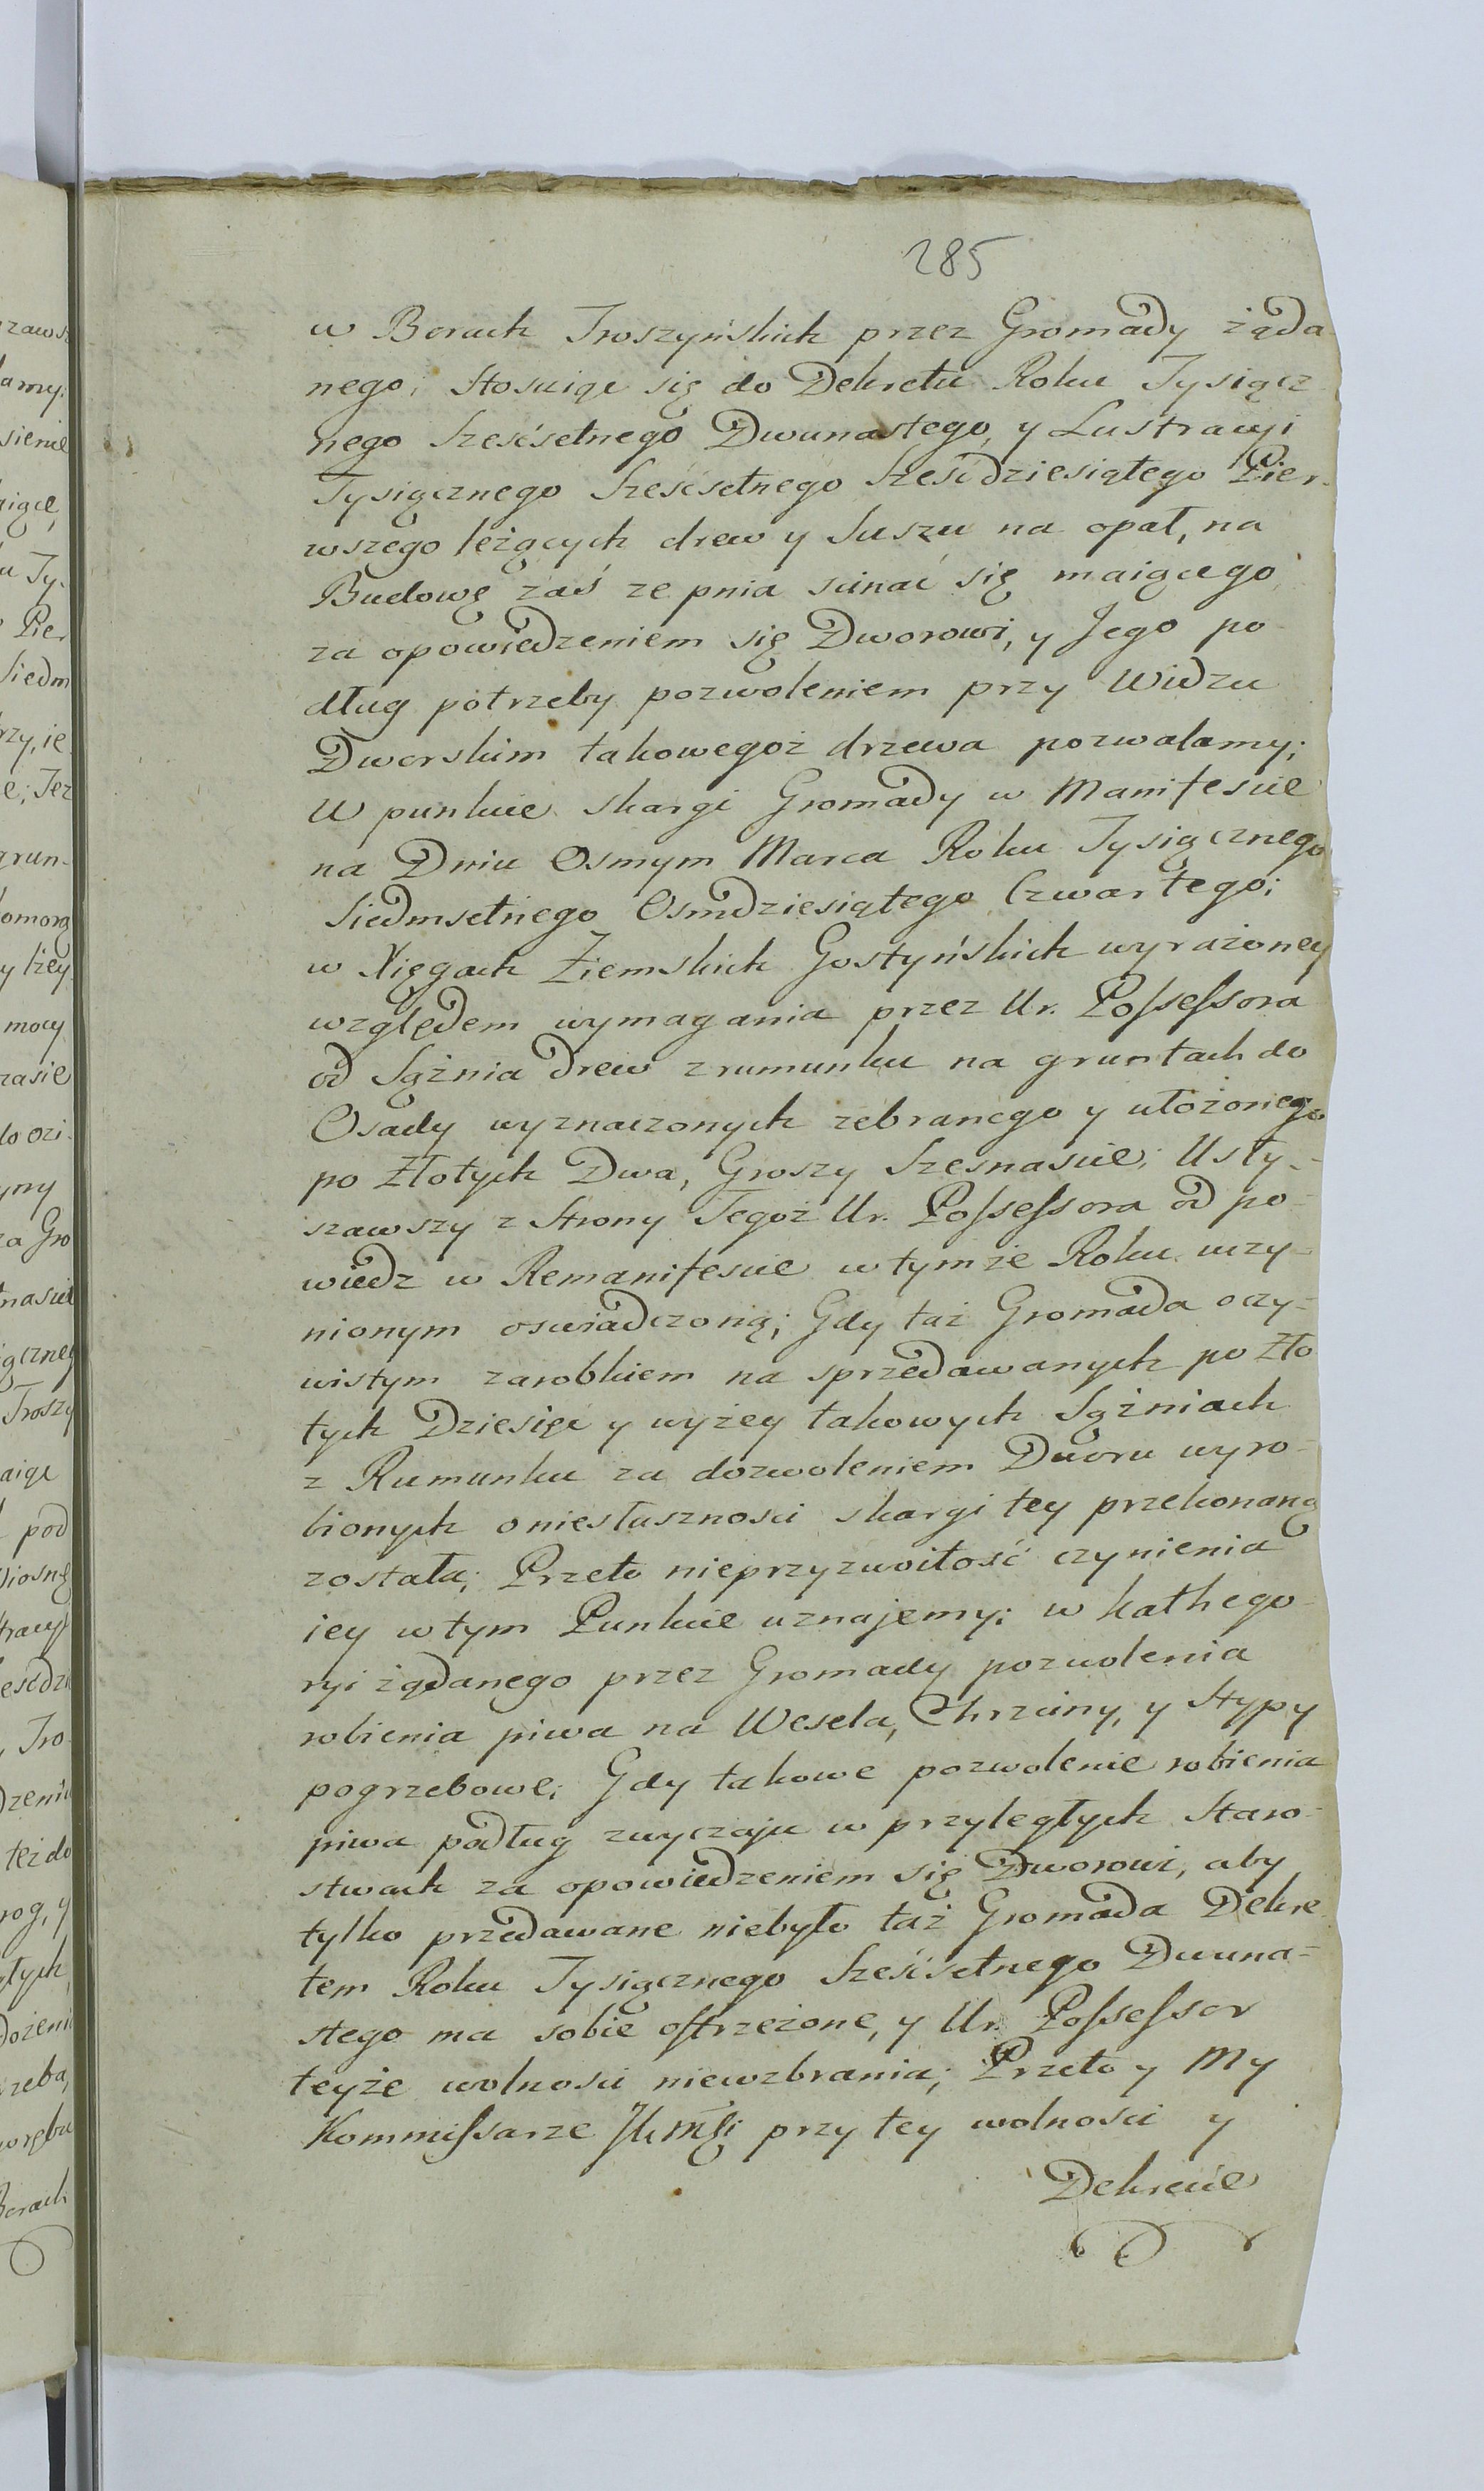 285
w Borach Troszyńskich przez Gromady żąda
nego, stosuiąc się do Dekretu Roku Tysiącz
nego Sześćsetnego Dwunastego, y Lustracyi
Tysiącznego Sześćsetnego Sześćdziesiątego Pier-
wszego leżących drew y suszu na opał, na
Budowę zaś ze pnia scinać się maiącego
za opowiedzeniem się Dworowi, y Jego po
dług potrzeby pozwoleniem przy Widzu
Dworskim takowegoż drzewa pozwalamy;
W punkcie skargi Gromady w Manifescie
na Dniu Osmym Marca Roku Tysiącznego
Siedmsetnego Osmdziesiątego Czwartego;
w Xięgach Ziemskich Gostyńskich wyrażoney
względem wymagania przez Ur. Possessora
od Sążnia drew z rumunku na gruntach do
Osady wyznaczonych zebranego y ułożonego
po Złotych Dwa, Groszy Szesnascie; Usły-
szawszy z Strony Tegoż Ur. Possessora od po-
wiedz w Remanifescie w tymże Roku uczy-
nionym oswiadczoną; Gdy taż Gromada oczy-
wistym zarobkiem na sprzedawanych po Zło
tych Dziesięć y wyżey takowych Sążniach
z Rumunku za dozwoleniem Dworu wyro-
bionych o niesłusznosci skargi tey przekonaną
została; Przeto nieprzyzwoitość czynienia
iey w tym Punkcie uznajemy; w kathego-
ryi żądanego przez Gromady pozwolenia
robienia piwa na Wesela, Chrzciny, y Stypy
pogrzebowe; Gdy takowe pozwolenie robienia
piwa podług zwyczaju w przyległych Staro-
stwach za opowiedzeniem się Dworowi, aby
tylko przedawane niebyło taż Gromada Dekre
tem Roku Tysiącznego Sześćsetnego Dwuna-
stego ma sobie ostrzeżone, y Ur. Possessor
teyże wolnosci niewzbrania; Przeto y My
Kommissarze JKMsci przy tey wolnosci y
Dekrecie